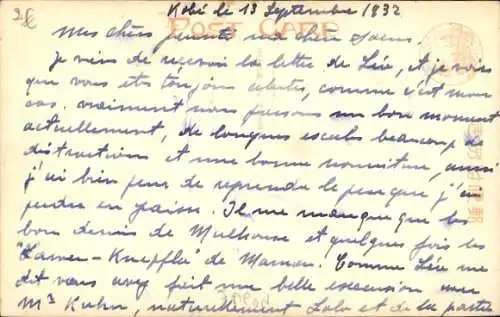 Kobé le 13 Septembre 1932
POST CARD
Mes chers parents, ma chère soeur.
Je viens de recevoir la lettre de Léa, et je vois
que vous êtes toujours alertes, comme c'est mon
cas. vraiment nous passons un bon moment
actuellement, de longues escales beaucoup de
distractions et une bonne nourriture, aussi
j'ai bien peur de reprendre le peu que j'ai
perdu en poids. Il me manque que les
bon demis de Mulhouse et quelques fois les
"Lawer-Knepfla" de Maman. Comme Léa me
dit vous avez fait une belle excursion avec
Mr Kuhn, naturellement Lolo et de la partie